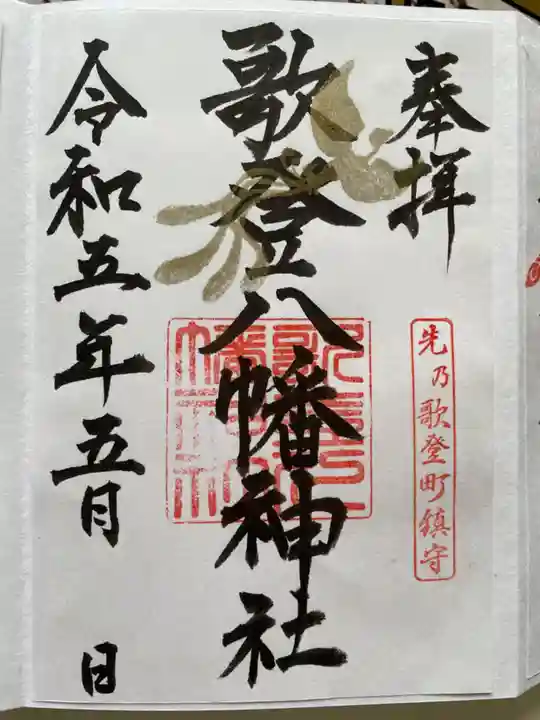 奉拝
先乃歌登町鎮守
歌登八幡神社
令和五年五月 日